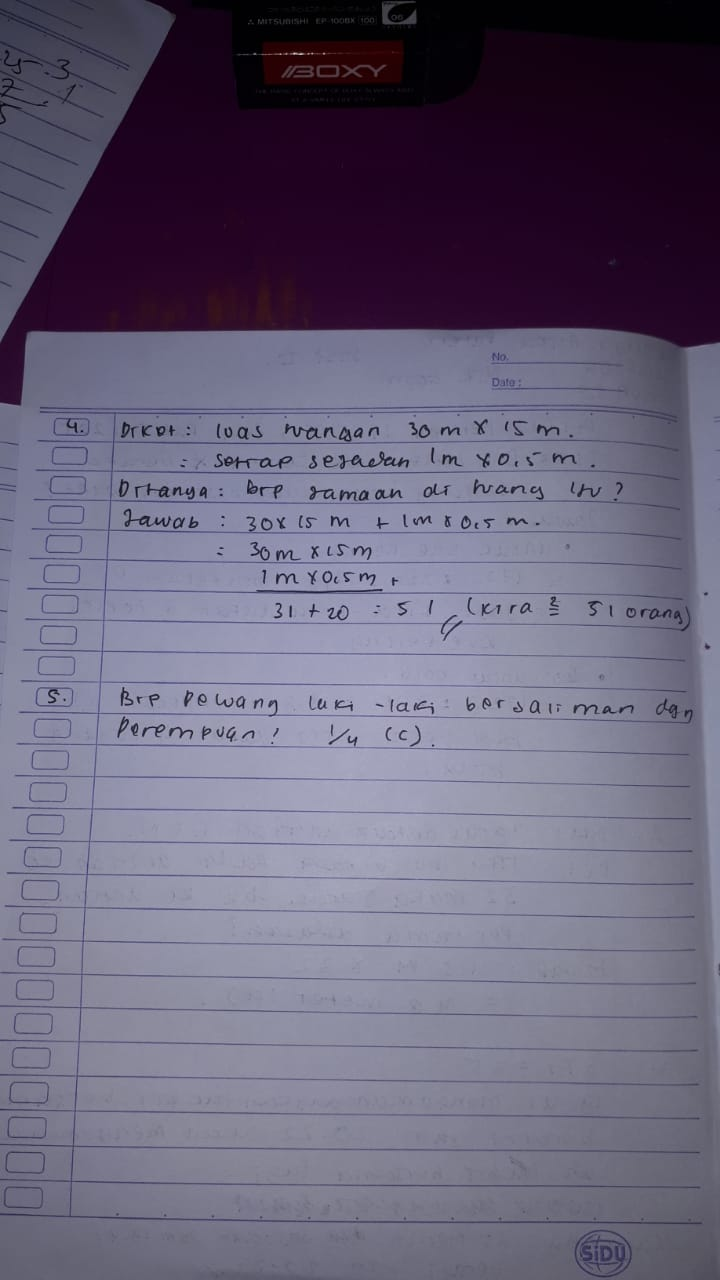 MITSUBISHI EP-100BX 100
BOXY
25.3
7 . 1
5
No.
Date :
4. Diket : luas ruangan 30 m x 15 m.
= setiap sejadah 1m x 0,5 m.
Ditanya : brp jamaah di ruang itu?
Jawab : 30 x 15 m + 1m x 0,5 m.
= 30m x 15m
1m x 0,5m +
31 + 20 = 51 (kira² 51 orang)
5. Brp peluang laki-laki bersaliman dgn
Perempuan? 1/4 (C).
SiDU